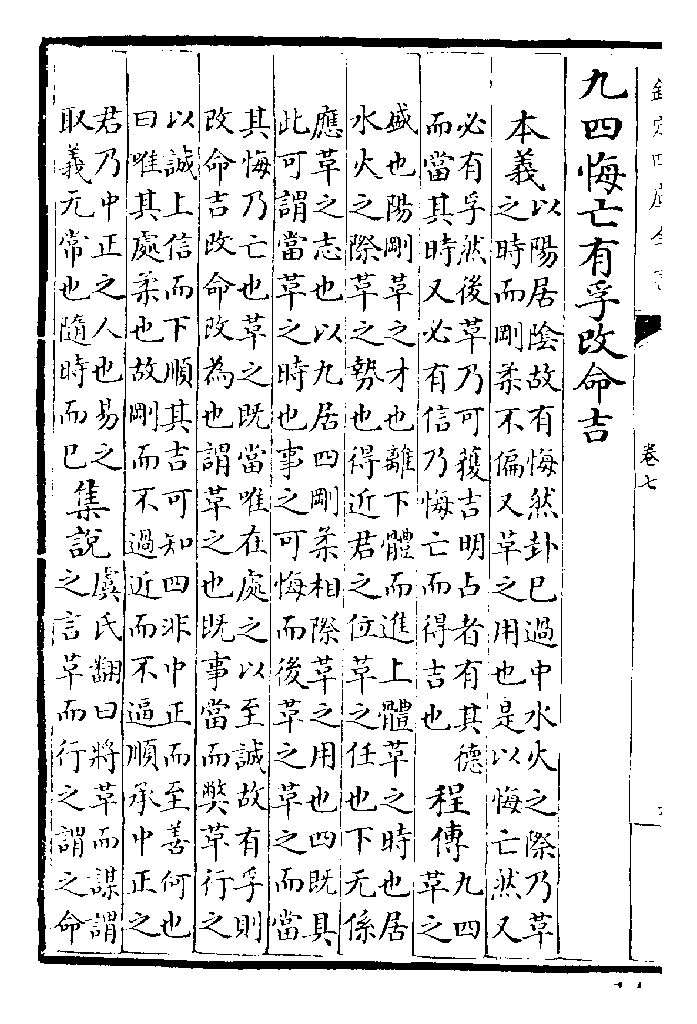 欽定四庫全書
卷七
九四悔亡有孚改命吉
本義
以陽居陰故有悔然卦已過中水火之際乃革
之時而剛柔不偏又革之用也是以悔亡然又
必有孚然後革乃可獲吉明占者有其德
而當其時又必有信乃悔亡而得吉也
程傳
九四
革之
盛也陽剛革之才也離下體而進上體革之時也居
水火之際革之勢也得近君之位革之任也下无係
應革之志也以九居四剛柔相際革之用也四既具
此可謂當革之時也事之可悔而後革之革之而當
其悔乃亡也革之既當唯在處之以至誠故有孚則
改命吉改命改為也謂革之也既事當而弊革行之
以誠上信而下順其吉可知四非中正而至善何也
曰唯其處柔也故剛而不過近而不逼順承中正之
君乃中正之人也易之
取義无常也隨時而已
集說
虞氏翻曰將革而謀謂
之言革而行之謂之命